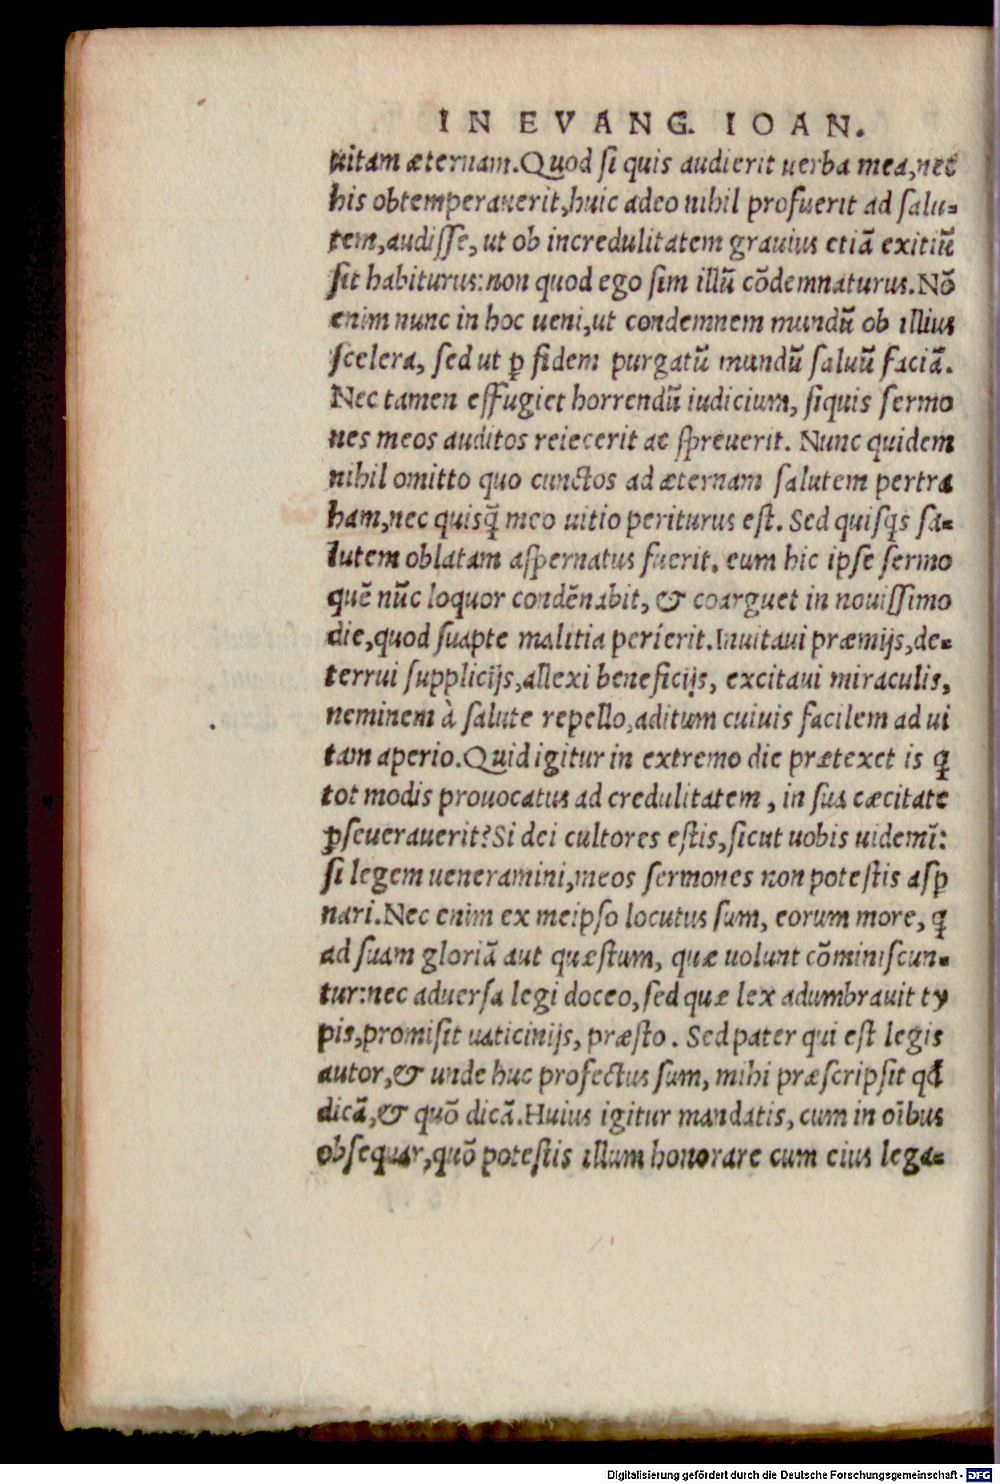 IN EVANG. IOAN.
uitam æternam. Quod ſi quis audierit uerba mea, nec
his obtemperauerit, huic adeo nihil profuerit ad ſalu-
tem, audiſſe, ut ob incredulitatem grauius etiã exitiũ
ſit habiturus: non quod ego ſim illũ cõdemnaturus. Nõ
enim nunc in hoc ueni, ut condemnem mundũ ob illius
ſcelera, ſed ut ꝑ fidem purgatũ mundũ ſaluũ faciã.
Nec tamen effugiet horrendũ iudicium, ſiquis ſermo
nes meos auditos reiecerit ac ſpreuerit. Nunc quidem
nihil omitto quo cunctos ad æternam ſalutem pertra
ham, nec quisq̃ meo uitio periturus eſt. Sed quiſq̃s ſa-
lutem oblatam aſpernatus fuerit, eum hic ipſe ſermo
quẽ nũc loquor condẽnabit, & coarguet in nouiſſimo
die, quod ſuapte malitia perierit. Inuitaui præmijs, de-
terrui ſupplicijs, allexi beneficijs, excitaui miraculis,
neminem à ſalute repello, aditum cuiuis facilem ad ui
tam aperio. Quid igitur in extremo die prætexet is q̃
tot modis prouocatus ad credulitatem, in ſua cæcitate
ꝑſeuerauerit? Si dei cultores eſtis, ſicut uobis uidemĩ:
ſi legem ueneramini, meos ſermones non poteſtis aſꝑ
nari. Nec enim ex meipſo locutus ſum, eorum more, q̃
ad ſuam gloriã aut quæſtum, quæ uolunt cõminiſcun-
tur: nec aduerſa legi doceo, ſed quæ lex adumbrauit ty
pis, promiſit uaticinijs, præſto. Sed pater qui eſt legis
autor, & unde huc profectus ſum, mihi præſcripſit qđ
dicã, & quõ dicã. Huius igitur mandatis, cum in oĩbus
obſequar, quõ poteſtis illum honorare cum eius lega-
Digitalisierung gefördert durch die Deutsche Forschungsgemeinschaft - DFG